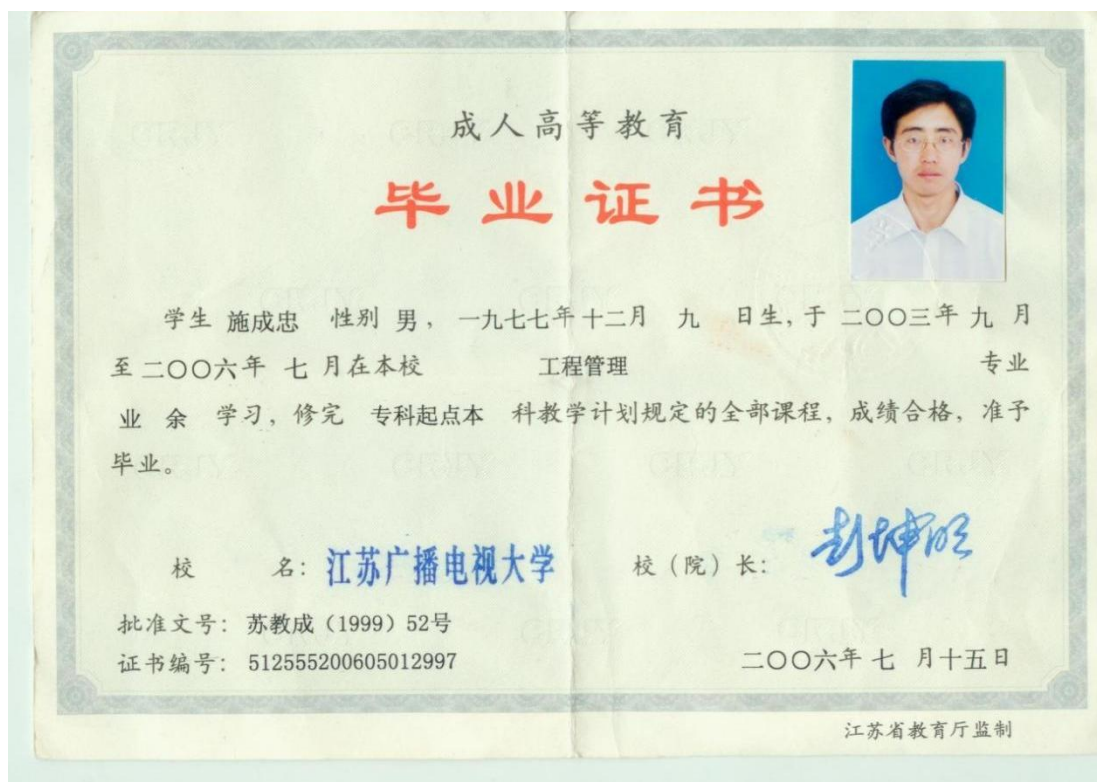 成人高等教育
毕业证书
学生 施成忠 性别 男，一九七七年十二月 九 日生，于 二〇〇三年 九 月
至 二〇〇六年 七 月在本校 工程管理 专业
业 余 学习，修完 专科起点本 科教学计划规定的全部课程，成绩合格，准予
毕业。
校 名：江苏广播电视大学 校（院）长：彭坤明
批准文号：苏教成（1999）52号
证书编号：512555200605012997 二〇〇六年 七 月十五日
江苏省教育厅监制